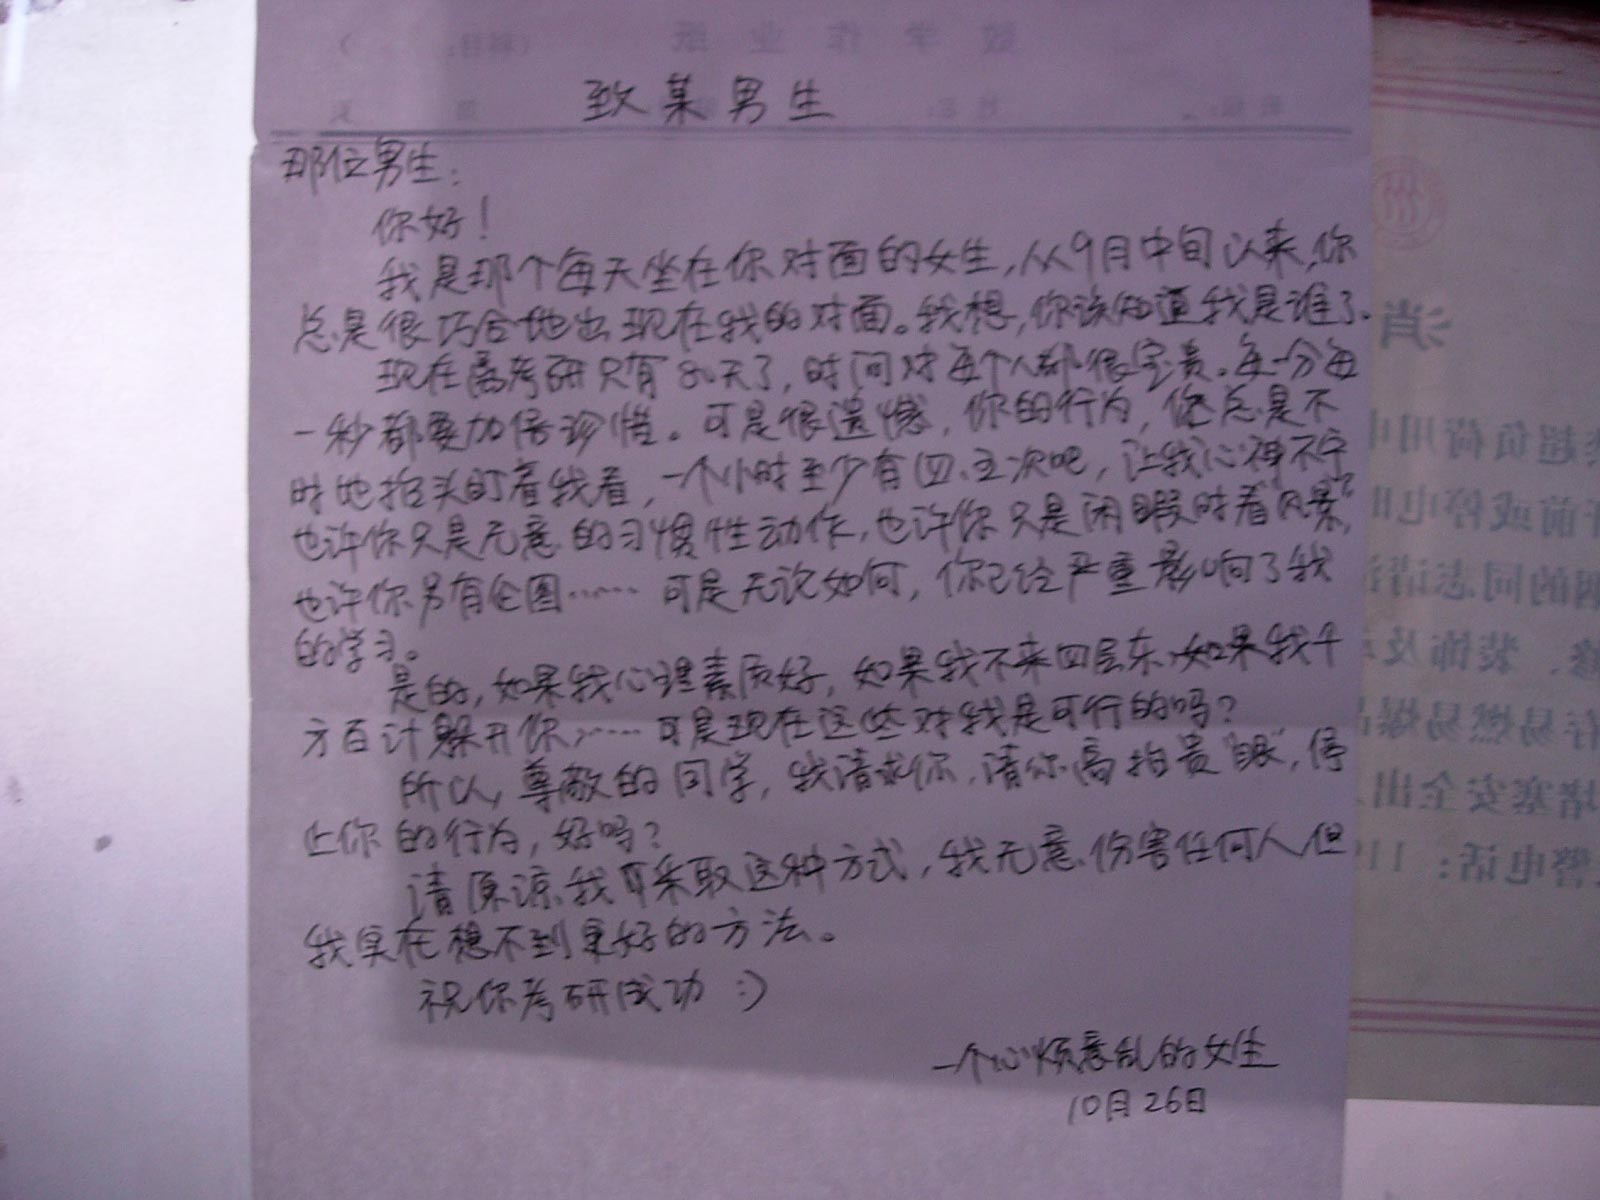 致某男生
那位男生：
你好！
我是那个每天坐在你对面的女生，从9月中旬以来，你
总是很巧合地出现在我的对面。我想，你该知道我是谁了。
现在离考研只有80天了，时间对每个人都很宝贵。每一分每
一秒都要加倍珍惜。可是很遗憾，你的行为，您总是不
时地抬头盯着我看，一个小时至少有四、五次吧，让我心神不宁
也许你只是无意的习惯性动作，也许你只是闲暇时看"风景"，
也许你另有企图……可是无论如何，你已经严重影响了我
的学习。
是的，如果我心理素质好，如果我不来四层东，如果我千
方百计躲开你，……可是现在这些对我是可行的吗？
所以，尊敬的同学，我请求你，请你高抬贵"眼"，停
止你的行为，好吗？
请原谅我采取这种方式，我无意伤害任何人但
我实在想不到更好的方法。
祝你考研成功 :)
一个心烦意乱的女生
10月26日
数学作业纸
（科目： ）
消
超负荷用电
前或停电时
的同志请
、装饰及
存易燃易爆
堵塞安全出
警电话：119